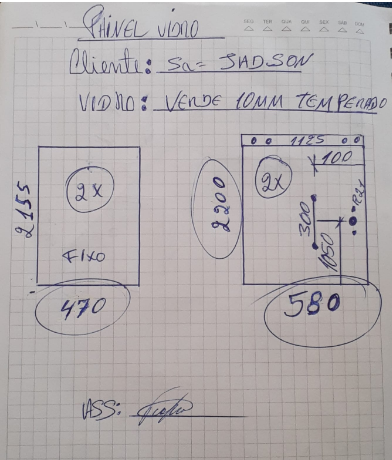 SEG TER QUA QUI SEX SAB DOM
PAINEL VIDRO
Cliente: Sa= JADSON
VIDRO: VERDE 10MM TEMPERADO
1125
100
2155
2X
2200
2X
300
FIXO
1050
470
580
ASS: